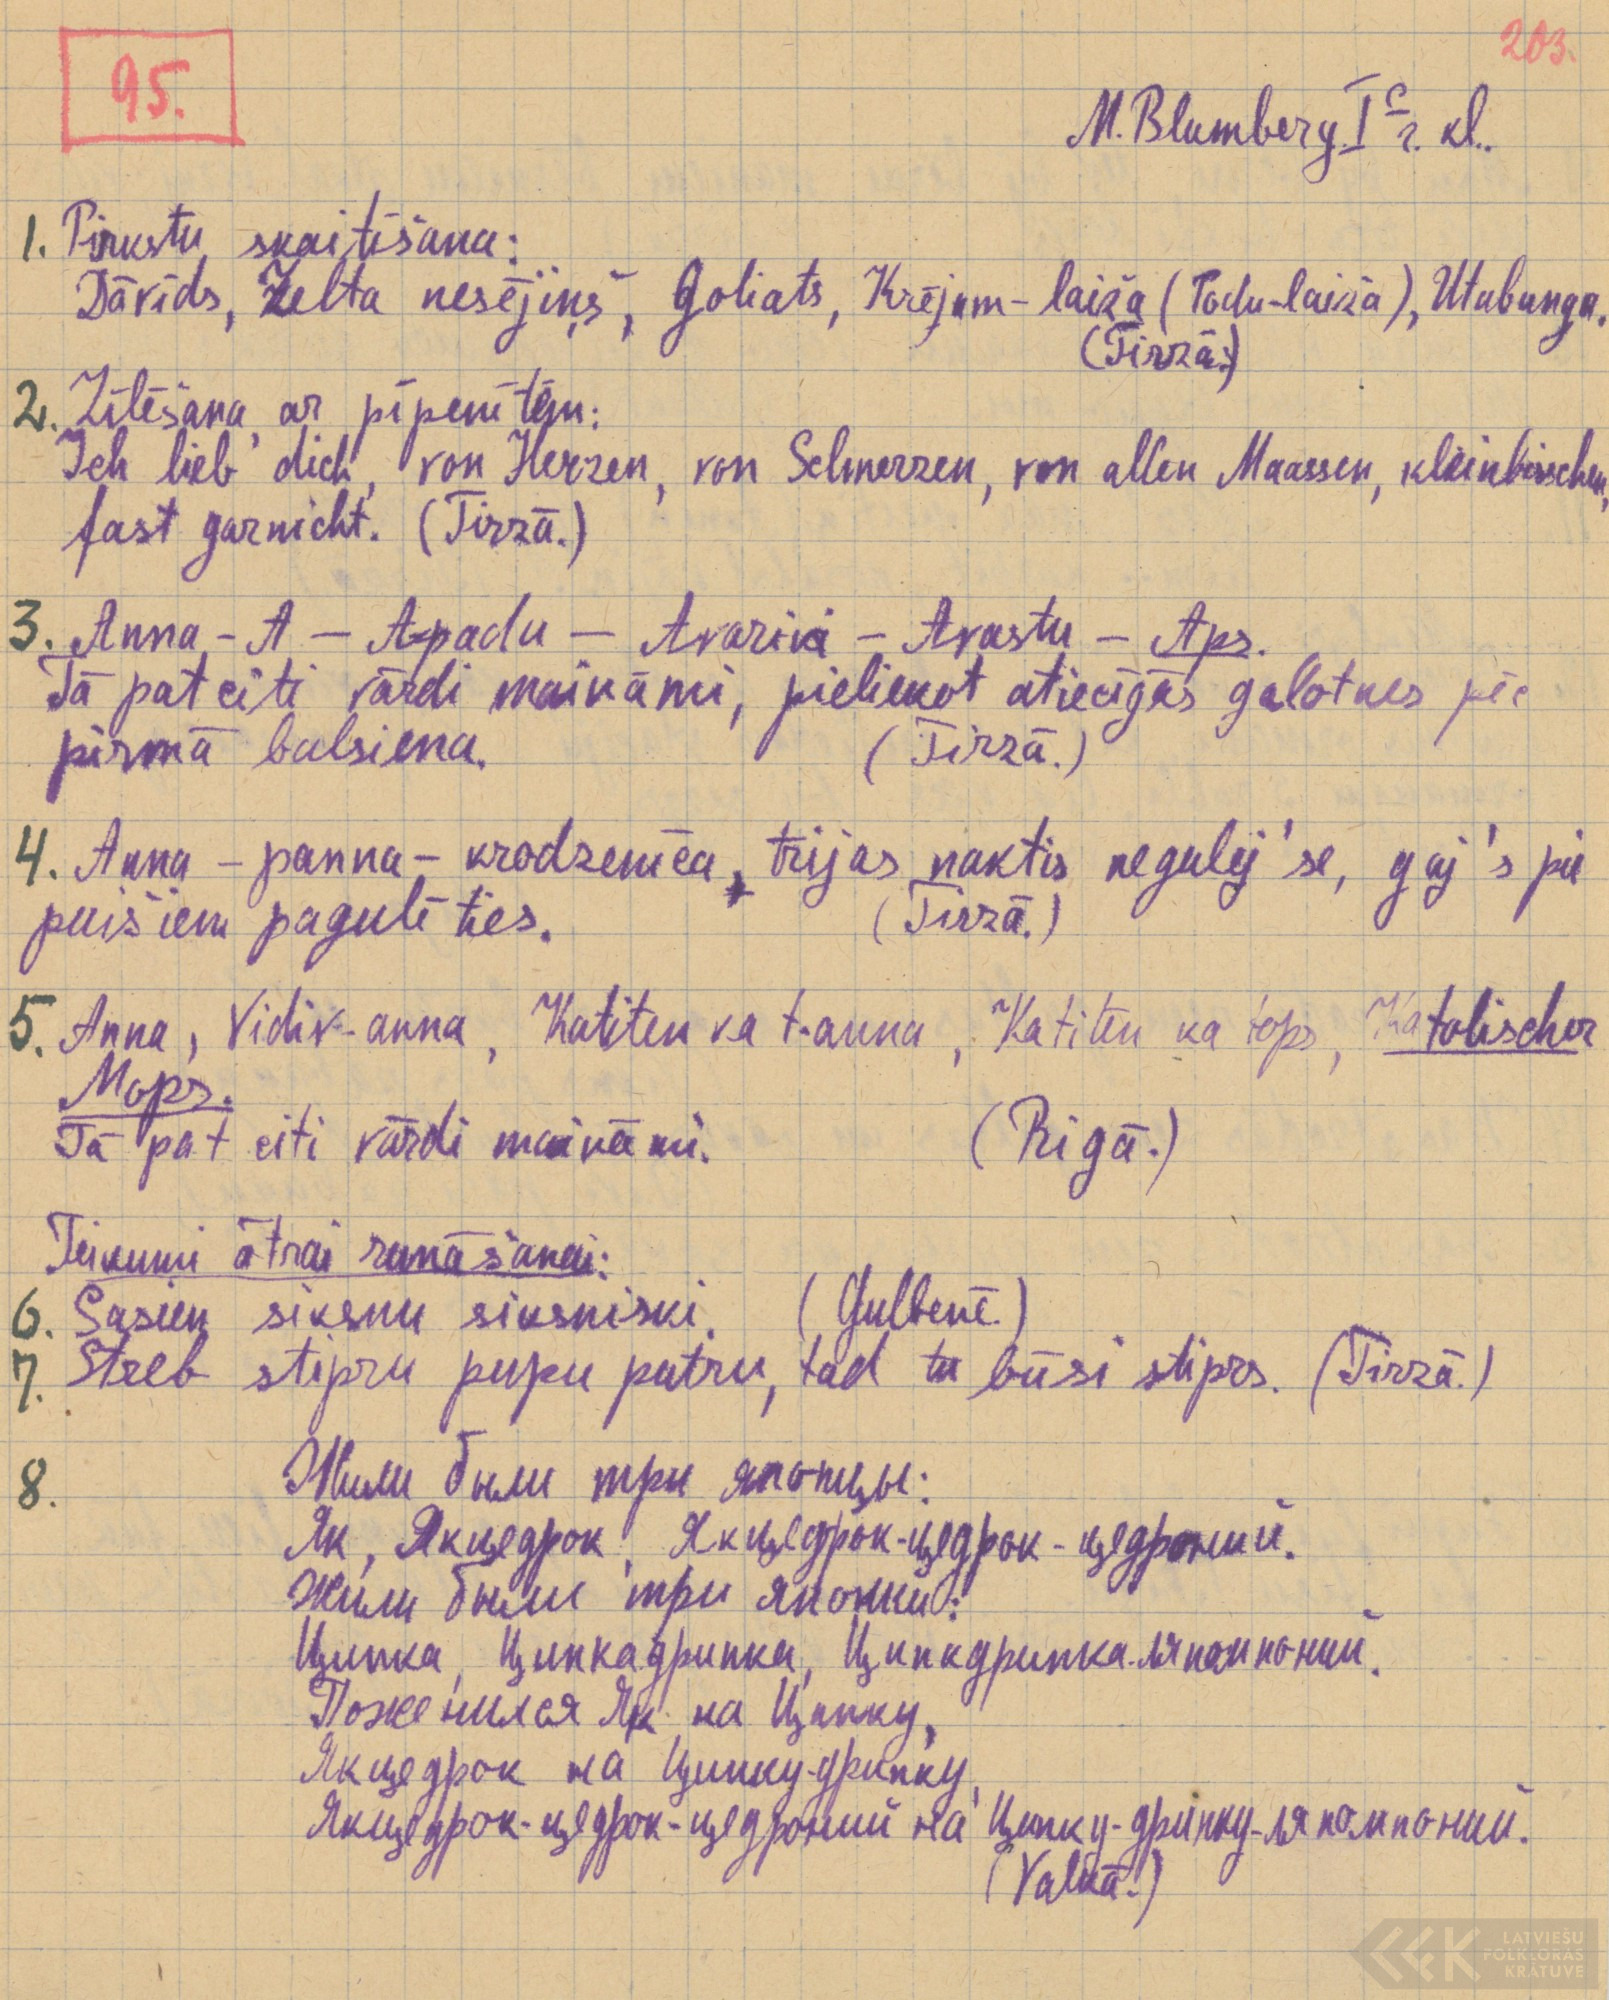 203.
95.
M. Blumberg. I c g. kl.
1. Pirkstu skaitīšana:
Dāvīds, Zelta nesējiņš, Goliats, Krējum-laiža (Podu-laiža), Utubunga.
(Tirzā.)
2. Zīlēšana ar pīpenītēm:
Ich lieb' dich, von Herzen, von Schmerzen, von allen Maassen, kleinbisschen,
fast garnicht. (Tirzā.)
3. Anna - A - Apadu - Avarivi - Avastu - Aps.
Tā pat citi vārdi maināmi, pieliekot atiecīgās galotnes pēc
pirmā balsiena. (Tirzā.)
4. Anna - panna - krodzeniča, trijas naktis negulēj'se, gāj's pie
puišiem pagulēties. (Tirzā.)
5. Anna, Vidiv-anna, Katiten ka t-anna, Katiten ka tops, Katolischer
Mops.
Tā pat citi vārdi maināmi. (Rigā.)
Teikumi ātrai runāšanai:
6. Sasien siksnu siksniski. (Gulbenē.)
7. Streb stipru pupu putru, tad tu būsi stiprs. (Tirzā.)
8. Жили были три японцы:
Як, Якцедрок, Якцедрок-цедрок-цедроний.
Жили были три японки:
Ципка, Ципкадрипка, Ципкадрипка-ляпомпоний.
Поженился Як на Ципку,
Якцедрок на Ципку-дрипку,
Якцедрок-цедрок-цедроний на Ципку-дрипку-ляпомпоний.
(Valkā.)
LATVIEŠU
FOLKLORAS
KRĀTUVE